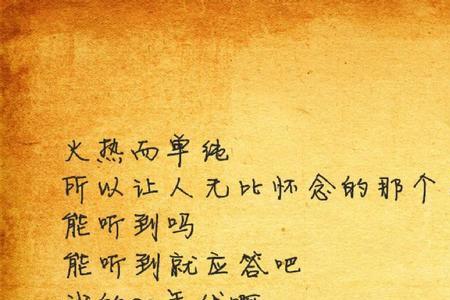 火热而单纯
所以让人无比怀念的那个
能听到吗
能听到就应答吧